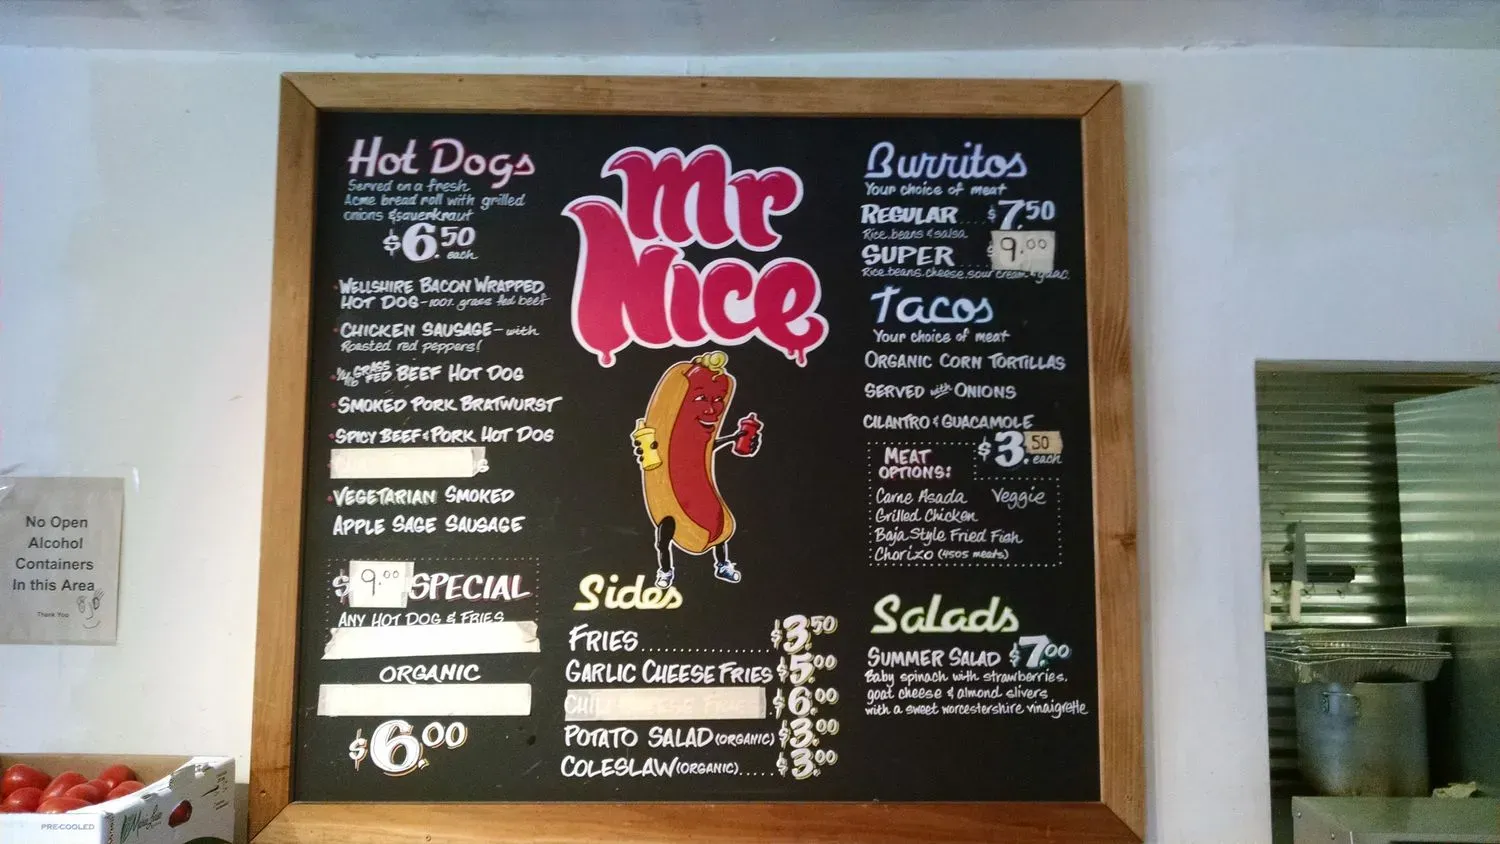 Hot Dogs
Served on a fresh
Acme bread roll with grilled
onions & sauerkraut
$6.50
each
WELLSHIRE BACON WRAPPED
HOT DOG - 100% grass fed beef
CHICKEN SAUSAGE - with
Roasted red peppers!
1/4 lb GRASS FED BEEF HOT DOG
SMOKED PORK BRATWURST
SPICY BEEF & PORK HOT DOG
VEGETARIAN SMOKED
APPLE SAGE SAUSAGE
$9.00 SPECIAL
ANY HOT DOG & FRIES
ORGANIC
$6.00
Mr
Nice
Sides
FRIES..............$3.50
GARLIC CHEESE FRIES $5.00
CHILI CHEESE FRIES. $6.00
POTATO SALAD (ORGANIC) $3.00
COLESLAW (ORGANIC)..... $3.00
Burritos
Your choice of meat
REGULAR....$7.50
Rice, beans & salsa
SUPER ...$9.00
Rice, beans, cheese, sour cream & guac.
Tacos
Your choice of meat
ORGANIC CORN TORTILLAS
SERVED with ONIONS
CILANTRO & GUACAMOLE
$3.50
each
MEAT
OPTIONS:
Carne Asada Veggie
Grilled Chicken
Baja Style Fried Fish
Chorizo (4505 meats)
Salads
SUMMER SALAD $7.00
Baby spinach with strawberries,
goat cheese & almond slivers
with a sweet worcestershire vinaigrette
No Open
Alcohol
Containers
In this Area
Thank You
PRE-COOLED